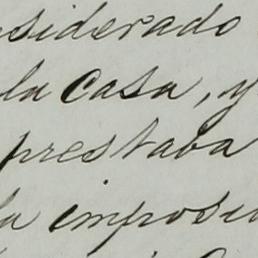 siderado
la casa, y
prestaba
la imposi